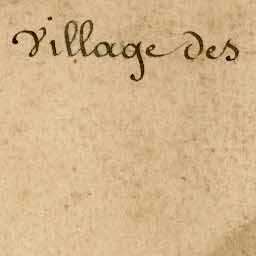 Village des